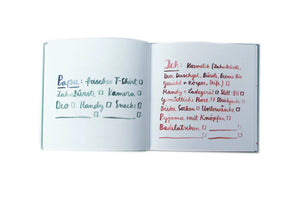 Papa: frisches T-Shirt
Zahnbürste Kamera
Deo Handy Snacks
Ich: Kosmetik (Zahnbürste,
Deo, Duschgel, Bürste, Creme für
Gesicht + Körper,
Handy + Ladegerät
gemütliche Hose
Dicke Socken Unterwäsche
Pyjama mit Knöpfen
Badelatschen